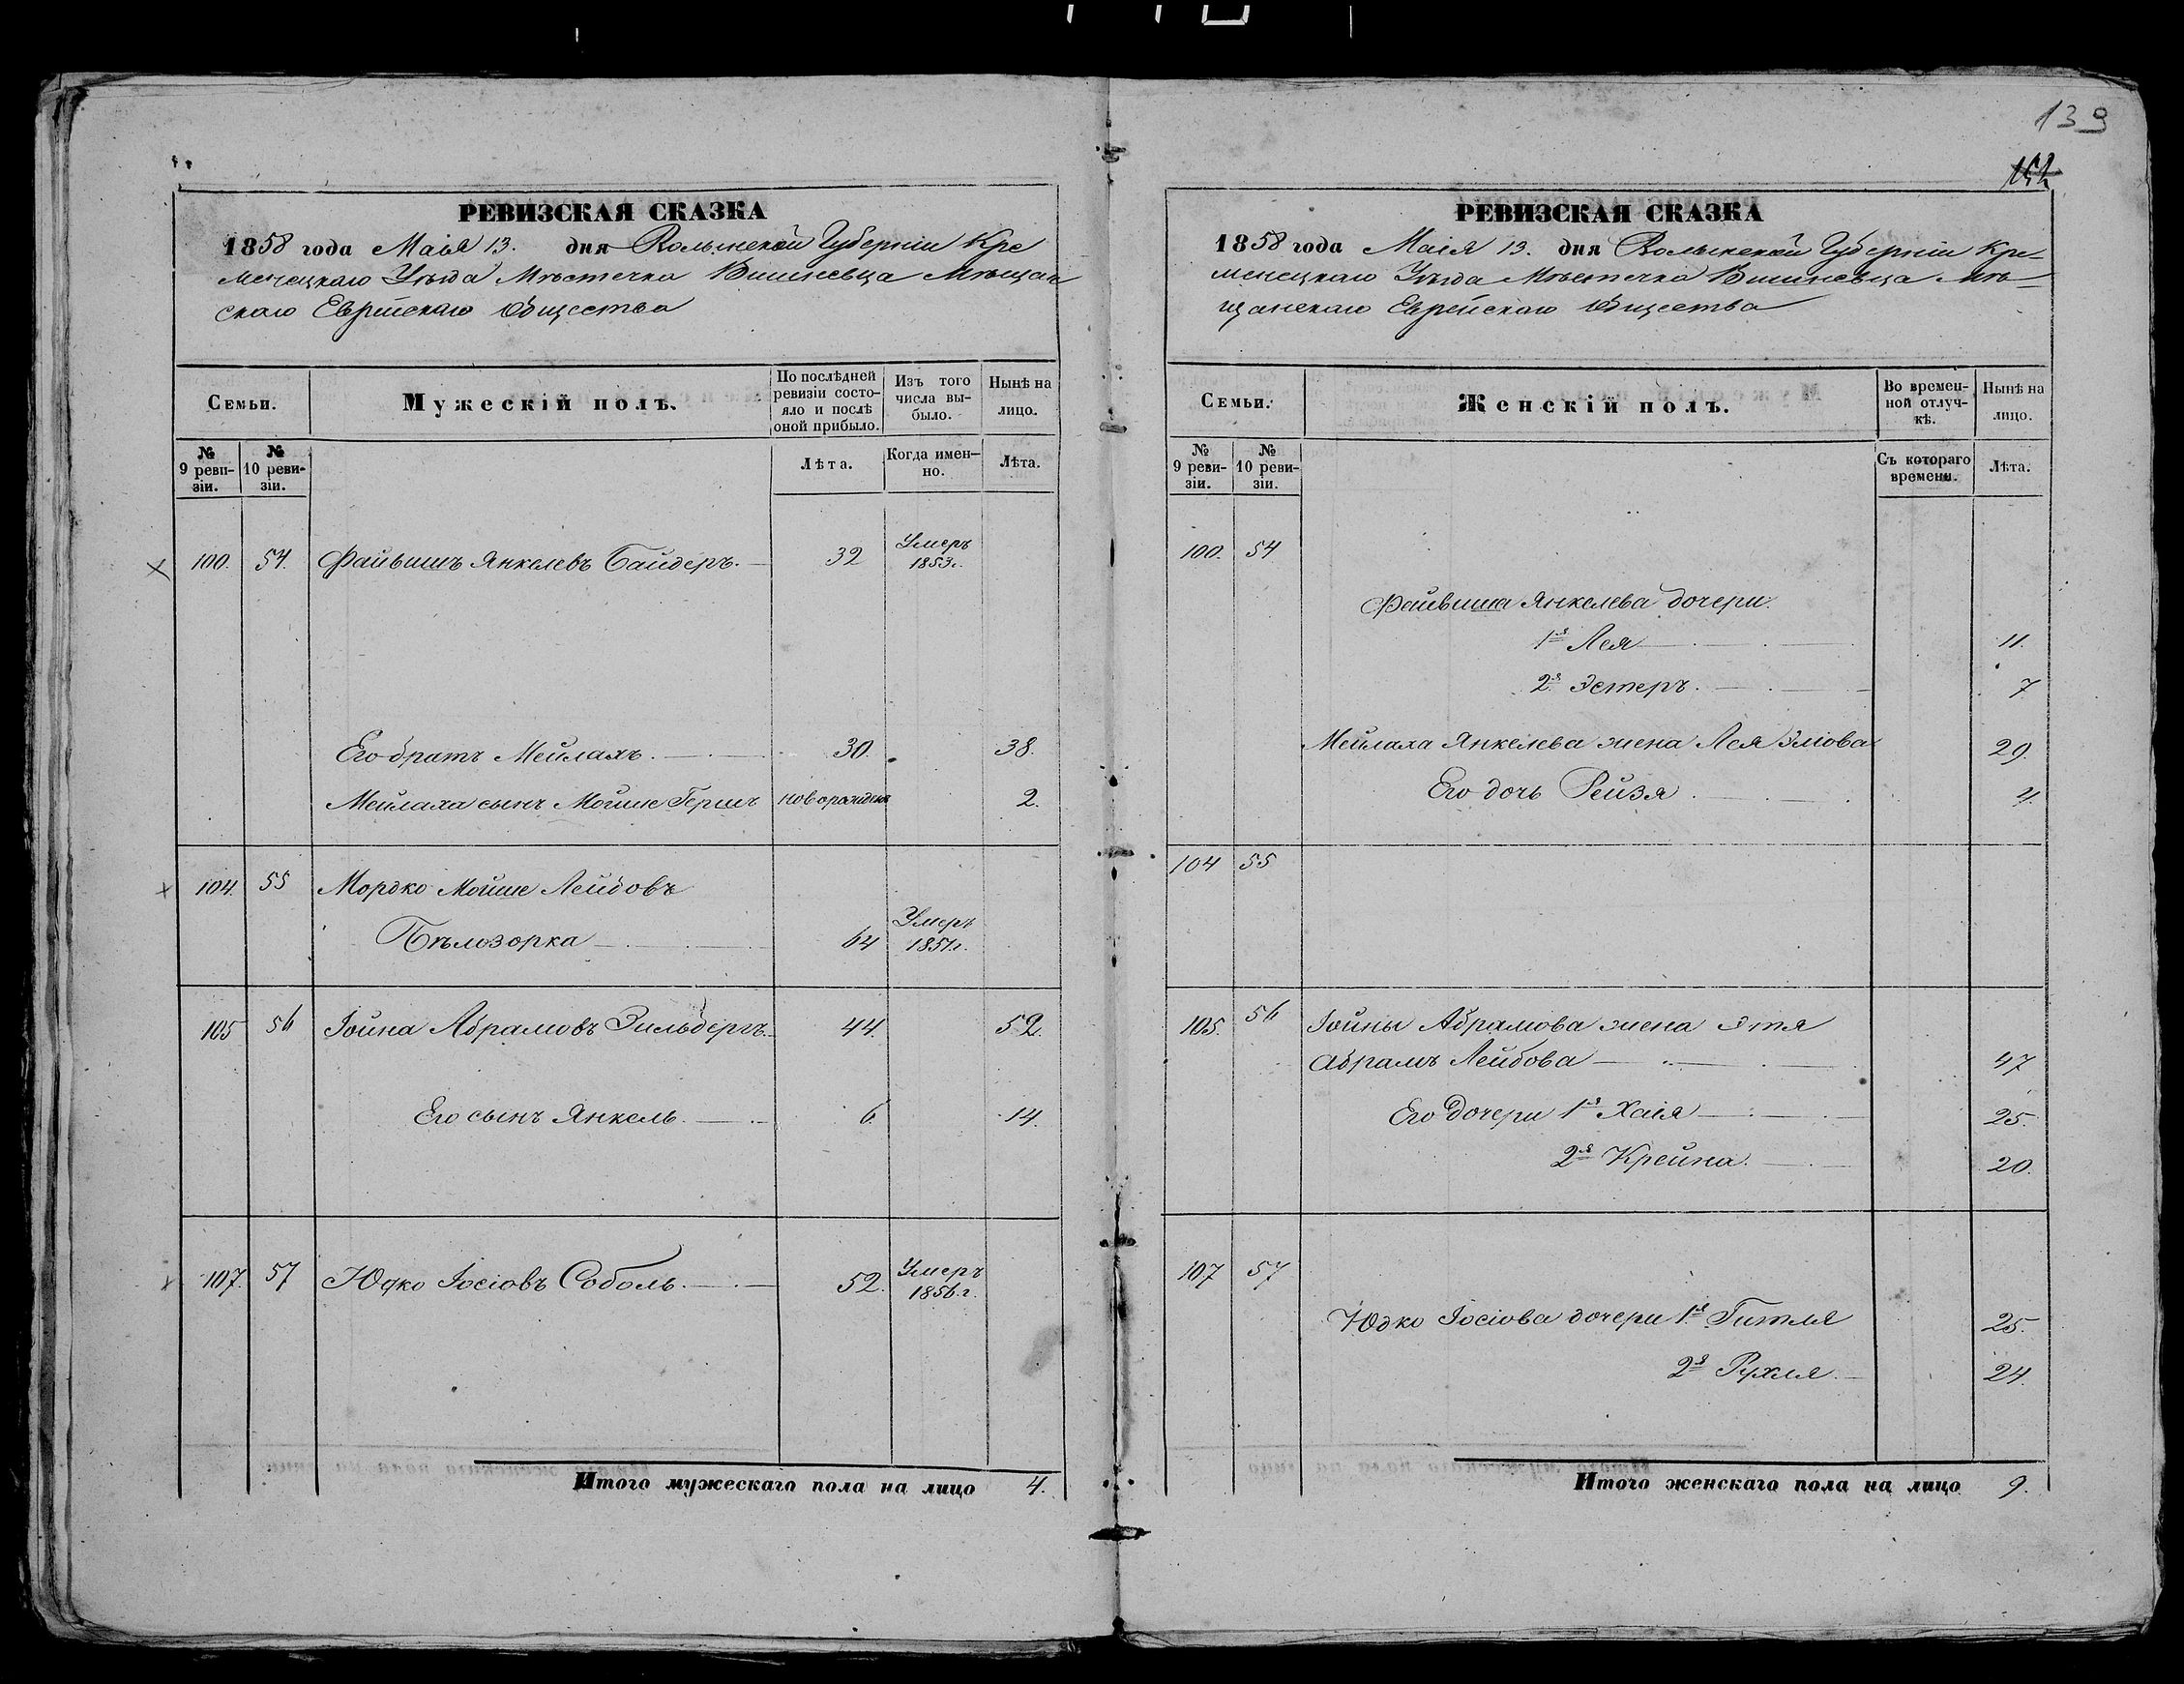 139
РЕВИЗСКАЯ СКАЗКА
1858 года Маія 13. дня Волынской Губерніи Кре
менецкаго Уѣзда Мѣстечка Вишневца Мѣщан
скаго Еврейскаго Общества
Семьи.
Мужескій полъ.
По послѣдней ревизіи состояло и послѣ оной прибыло.
Изъ того числа выбыло.
Нынѣ на лицо.
№ 9 ревизіи.
№ 10 ревизіи.
Лѣта.
Когда именно.
Лѣта.
100. 54. Файвишъ Янкелевъ Байдеръ. 32 Умеръ 1853г.
Его братъ Мейлахъ. 30. 38.
Мейлаха сынъ Мойше Гершъ новорожден 2.
104. 55 Мордко Мойше Лейбовъ
Бѣлозорка 64 Умеръ 1851г.
105 56 Іойна Абрамовъ Зильбергъ. 44. 52.
Его сынъ Янкель. 6. 14.
107. 57 Юдко Іосіовъ Соболь. 52. Умеръ 1856.г.
Итого мужескаго пола на лицо 4.
РЕВИЗСКАЯ СКАЗКА
1858 года Маія 13. дня Волынской Губерніи Кре-
менецкаго Уѣзда Мѣстечка Вишневца Мѣ-
щанскаго Еврейскаго Общества
Семьи.
Женскій полъ.
Во временной отлучкѣ.
Нынѣ на лицо.
№ 9 ревизіи.
№ 10 ревизіи.
Съ котораго времени.
Лѣта.
100. 54
Файвиша Янкелева дочери.
1я Лея 11.
2я Эстеръ. 7
Мейлаха Янкелева жена Лея Эліова 29.
Его дочь Рейзя 4.
104 55
105. 56 Іойны Абрамова жена Этя
Абрамъ Лейбова 47
Его дочери 1я Хаія 25.
2я Крейна. 20.
107 57
Юдко Іосіова дочери 1я Гитля 25.
2я Рухля. 24.
Итого женскаго пола на лицо 9.